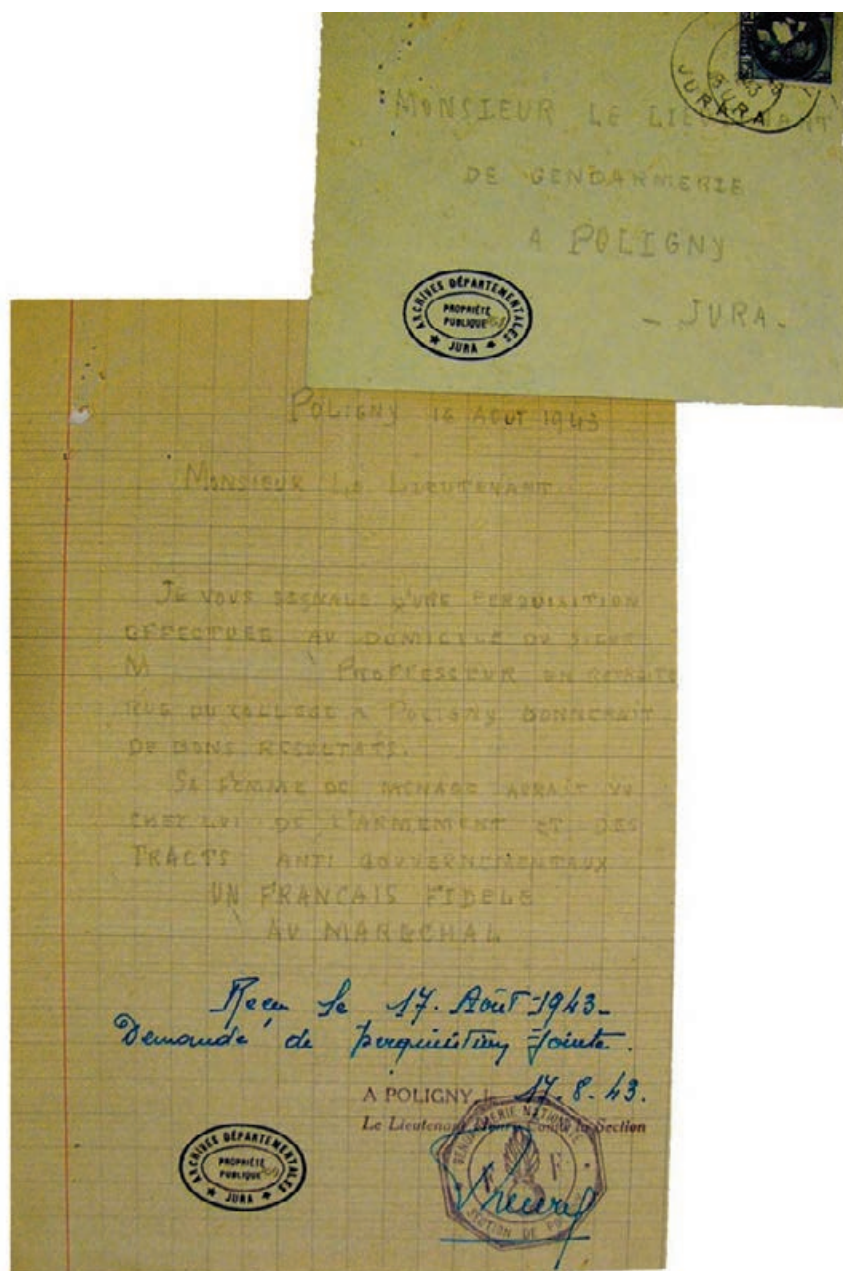 JURA
JURA
MONSIEUR LE LIEUTENANT
DE GENDARMERIE
A POLIGNY
- JURA -
ARCHIVES DÉPARTEMENTALES
PROPRIÉTÉ
PUBLIQUE
JURA
POLIGNY 16 AOUT 1943
MONSIEUR LE LIEUTENANT
JE VOUS SIGNALE Q'UNE PERQUISITION
EFFECTUEE AU DOMICILE DU SIEUR
M PROFFESSEUR EN RETRAITE
RUE DU COLLEGE A POLIGNY DONNERAIT
DE BONS RESULTATS.
SA FEMME DE MENAGE AURAIT VU
CHEZ LUI DE L'ARMEMENT ET DES
TRACTS ANTI GOUVERNEMENTAUX
UN FRANCAIS FIDELE
AU MARECHAL
Reçu le 17. Août 1943-
Demande de perquisition jointe.
A POLIGNY, le 17.8.43.
Le Lieutenant Henry Comdt la Section
GENDARMERIE NATIONALE
F
SECTION DE
ARCHIVES DÉPARTEMENTALES
PROPRIÉTÉ
PUBLIQUE
JURA